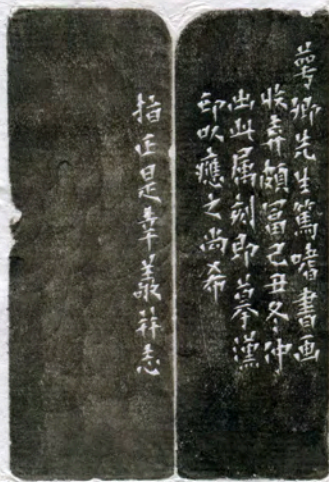 萼卿先生篤嗜書画
收弆頗富己丑冬仲
出此属刻即摹漢
印以應之尚希
指正是幸羲并志